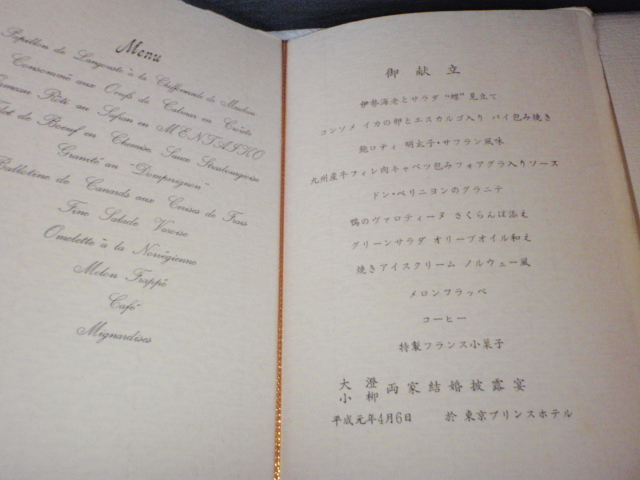 Menu
Papillon de Langouste à la Chiffonnade de Machon
Consommé aux Oeufs de Calmar en Croûte
Rôti au Safran en MENTAIKO
de Boeuf en Chemise, Sauce Strasbourgeoise
Granité au "Domperignon"
Ballotine de Canards aux Cerises de Frais
Fine Salade Varoise
Omelette à la Norvégienne
Melon Frappé
Café
Mignardises
御献立
伊勢海老とサラダ“蝶”見立て
コンソメ イカの卵とエスカルゴ入り パイ包み焼き
鮑ロティ 明太子・サフラン風味
九州産牛フィレ肉キャベツ包みフォアグラ入りソース
ドン・ペリニヨンのグラニテ
鴨のヴァロティーヌ さくらんぼ添え
グリーンサラダ オリーブオイル和え
焼きアイスクリーム ノルウェー風
メロンフラッペ
コーヒー
特製フランス小菓子
大澄
小柳 両家結婚披露宴
平成元年4月6日 於 東京プリンスホテル